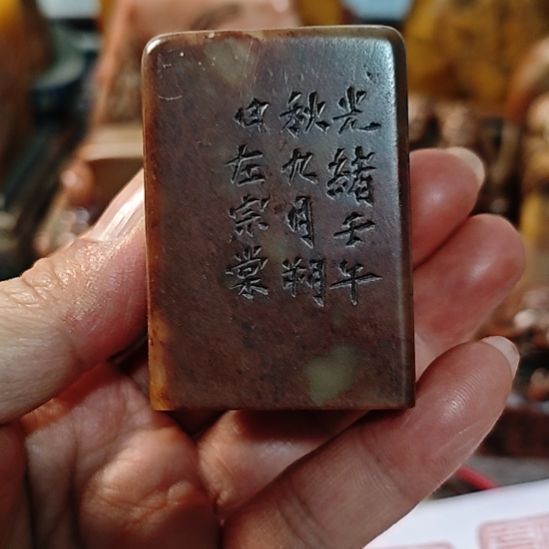 光緒壬午
秋九月朔
日左宗棠